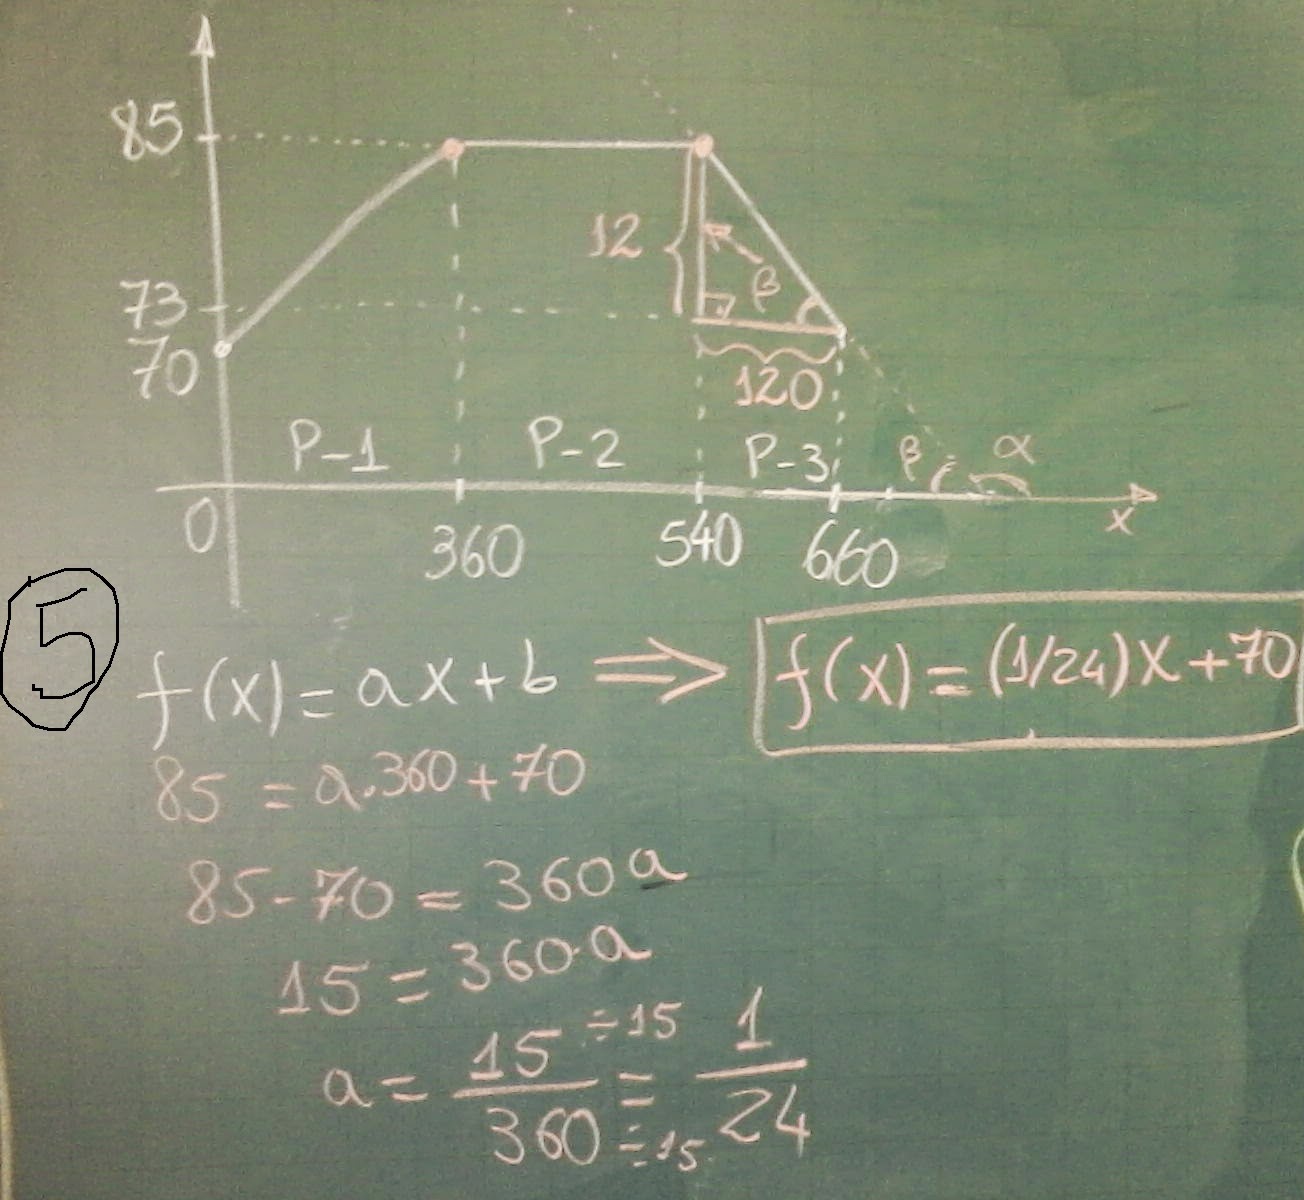 85
12
β
73
70
120
P-1 P-2 P-3 β α
0 360 540 660 x
5
f(x) = ax + b ⟹ f(x) = (1/24)x + 70
85 = a.360 + 70
85 - 70 = 360a
15 = 360.a
a = 15÷15 / 360÷15 = 1/24